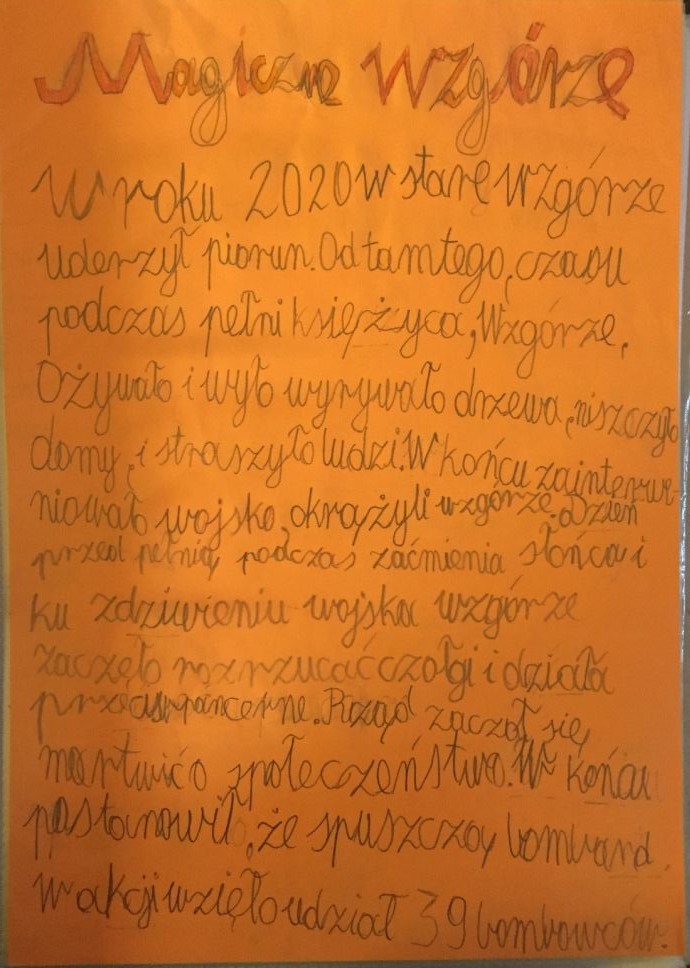 Magiczne Wzgórze
W roku 2020 w stare Wzgórze
uderzył piorun. Od tamtego, czasu
podczas pełni księżyca, Wzgórze,
Ożywało i wyło wyrywało drzewa, niszczyło
domy, i straszyło ludzi. W końcu zainterwe
niowało wojsko, okrążyli wzgórze. Dzień
przed pełnią, podczas zaćmienia słońca i
ku zdziwieniu wojska wzgórze
zaczęło rozrzucać czołgi i działa
przeciwpancerne. Rząd zaczął się
martwić o społeczeństwo. W końcu
postanowił, że spuszczą
W akcji wzięło udział 39 bombowców.